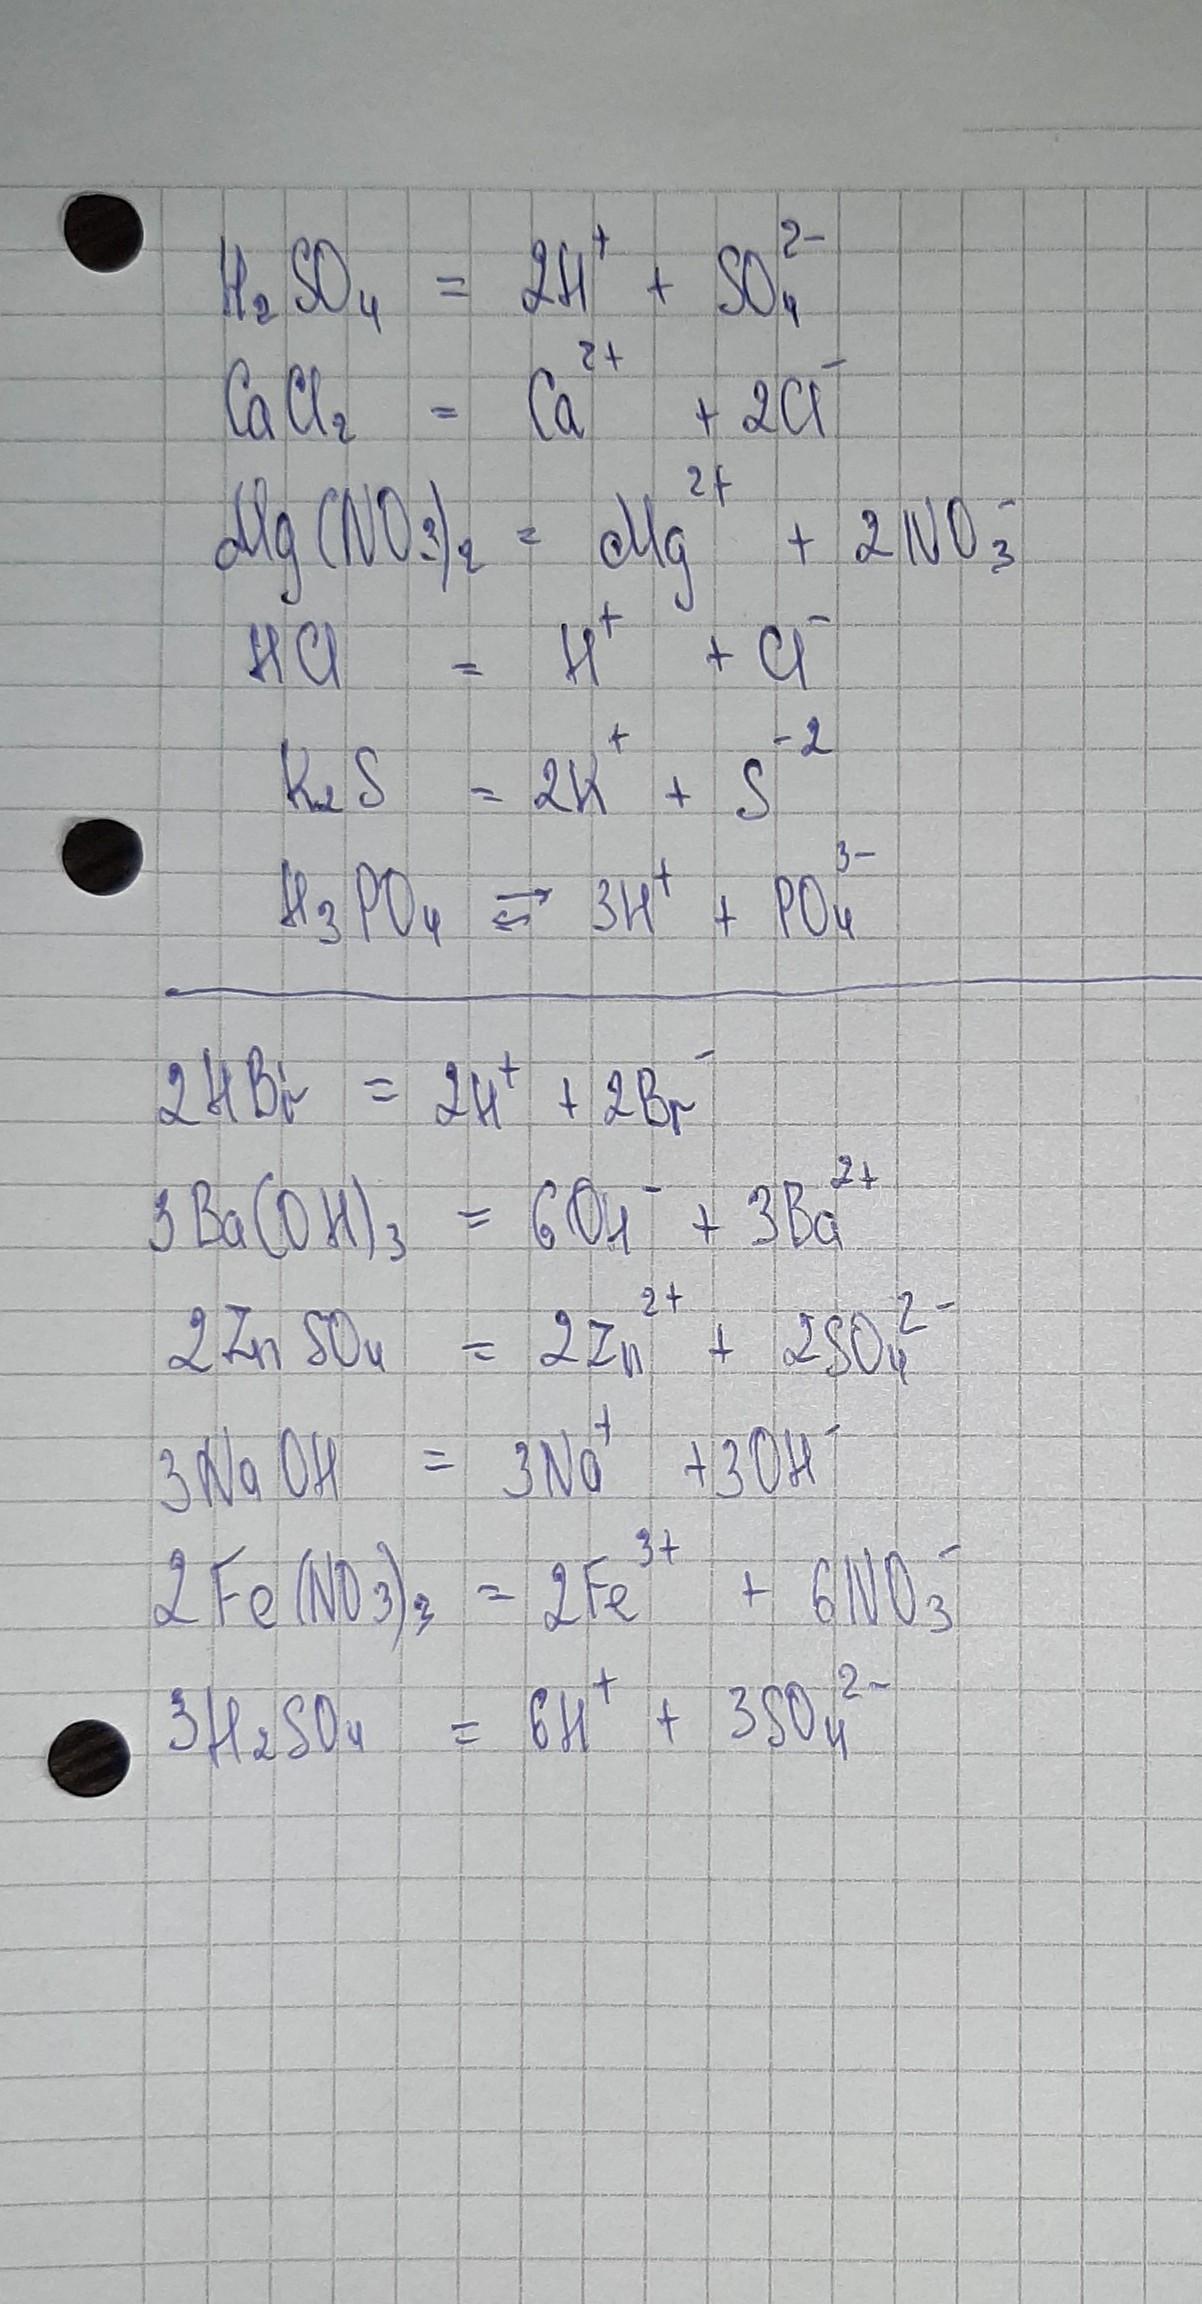 H₂SO₄ = 2H⁺ + SO₄²⁻
CaCl₂ = Ca²⁺ + 2Cl⁻
Mg(NO₃)₂ = Mg²⁺ + 2NO₃⁻
HCl = H⁺ + Cl⁻
K₂S = 2K⁺ + S⁻²
H₃PO₄ ⇄ 3H⁺ + PO₄³⁻
2HBr = 2H⁺ + 2Br⁻
3Ba(OH)₃ = 6OH⁻ + 3Ba²⁺
2ZnSO₄ = 2Zn²⁺ + 2SO₄²⁻
3NaOH = 3Na⁺ + 3OH⁻
2Fe(NO₃)₃ = 2Fe³⁺ + 6NO₃⁻
3H₂SO₄ = 6H⁺ + 3SO₄²⁻